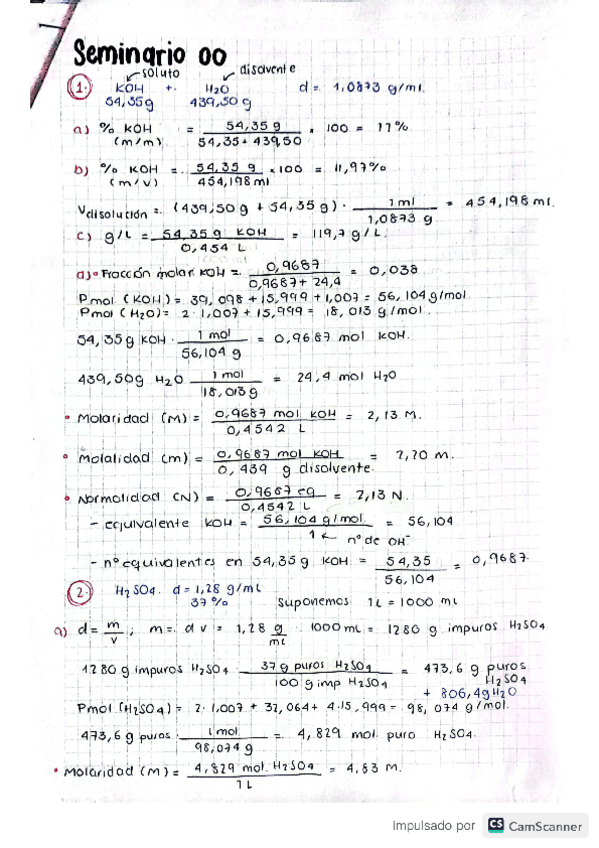 Seminario 00
soluto disolvente
1. KOH + H2O d = 1,0873 g/ml.
54,35g 439,50 g
a) % KOH (m/m) = 54,35 g / 54,35 + 439,50 × 100 = 11%
b) % KOH (m/v) = 54,35 g / 454,198 ml × 100 = 11,97%
Vdisolución = (439,50 g + 54,35 g) · 1 ml / 1,0873 g = 454,198 ml.
c) g/L = 54,35 g KOH / 0,454 L = 119,7 g/L.
d) • Fracción molar KOH = 0,9687 / 0,9687 + 24,4 = 0,038
Pmol (KOH) = 39,098 + 15,999 + 1,007 = 56,104 g/mol
Pmol (H2O) = 2·1,007 + 15,999 = 18,013 g/mol.
54,35 g KOH · 1 mol / 56,104 g = 0,9687 mol KOH.
439,50g H2O · 1 mol / 18,013g = 24,4 mol H2O
• Molaridad (M) = 0,9687 mol KOH / 0,4542 L = 2,13 M.
• Molalidad (m) = 0,9687 mol KOH / 0,439 g disolvente. = 2,20 m.
• Normalidad (N) = 0,9687 eq / 0,4542 L = 2,13 N.
- equivalente KOH = 56,104 g/mol / 1 ← nº de OH⁻ = 56,104
- nº equivalentes en 54,35 g KOH = 54,35 / 56,104 = 0,9687.
2. H2SO4. d = 1,28 g/ml
37 % Suponemos 1L = 1000 ml
a) d = m/v ; m = d v = 1,28 g/ml · 1000 ml = 1280 g impuros H2SO4
1280 g impuros H2SO4 · 37 g puros H2SO4 / 100 g imp H2SO4 = 473,6 g puros H2SO4
+ 806,4g H2O
Pmol (H2SO4) = 2·1,007 + 32,064 + 4·15,999 = 98,074 g/mol.
473,6 g puros · 1 mol / 98,074 g = 4,829 mol puro H2SO4.
• Molaridad (M) = 4,829 mol H2SO4 / 1 L = 4,83 M.
Impulsado por CS CamScanner